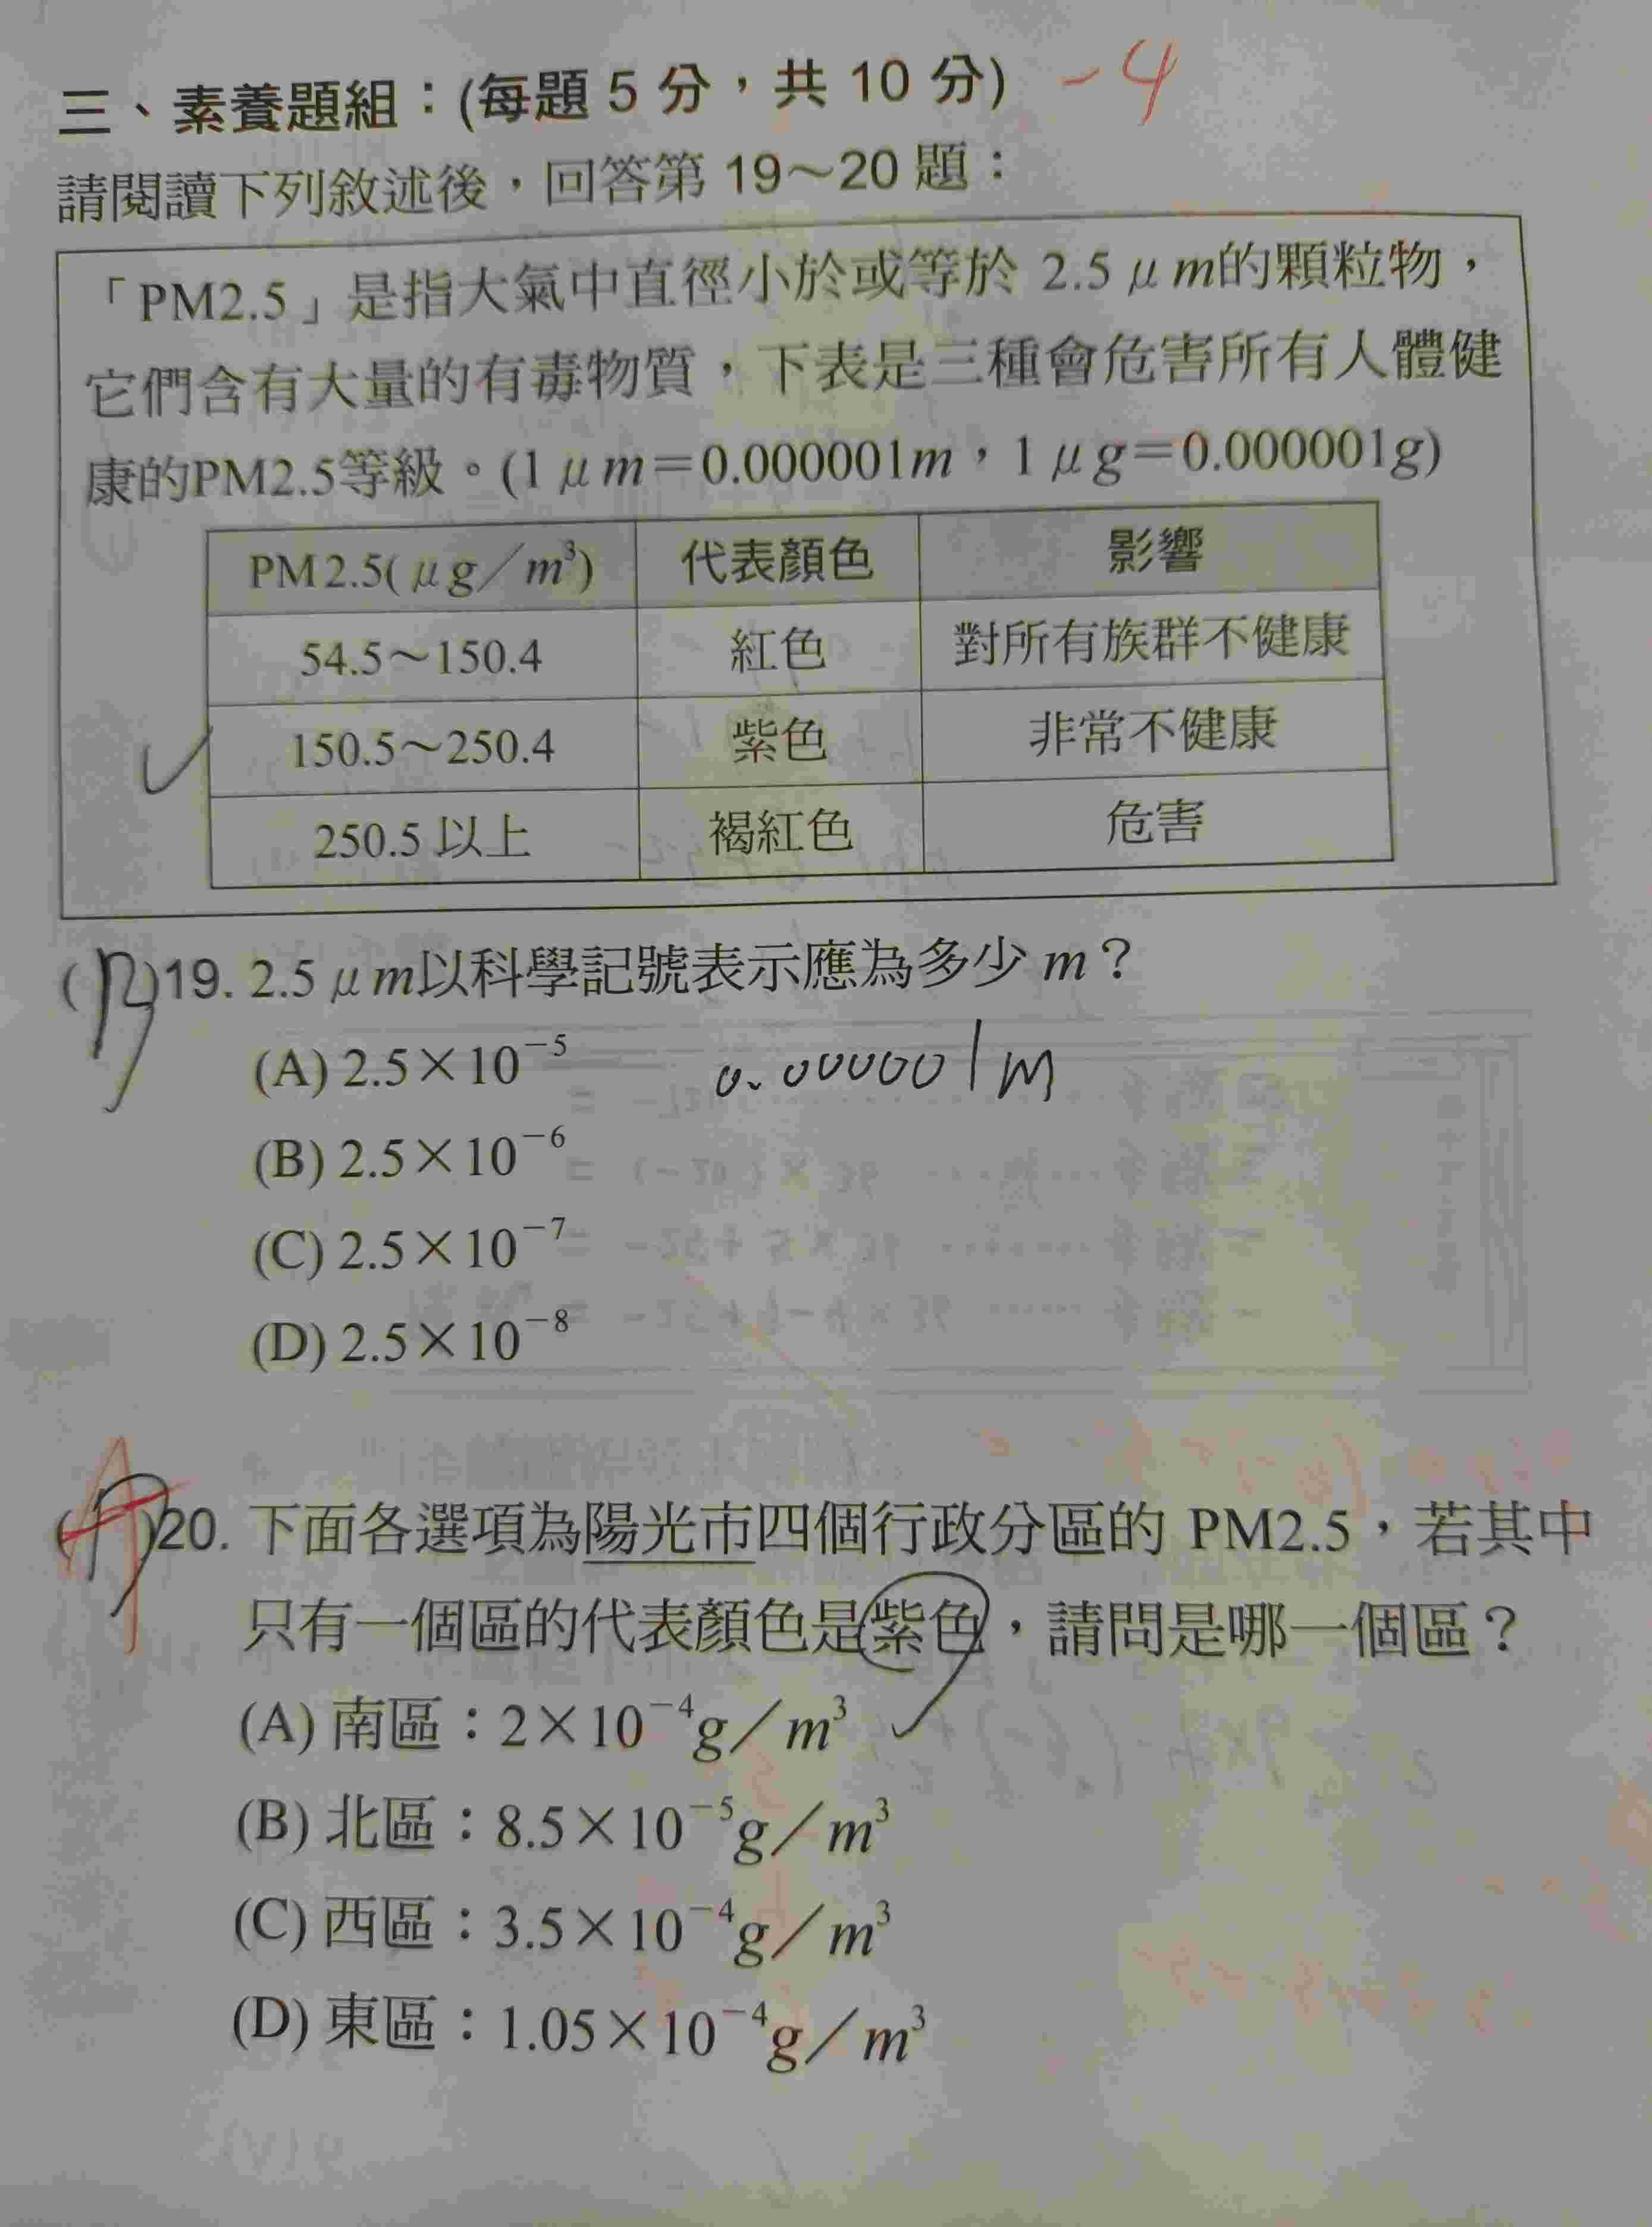 三、素養題組：(每題 5 分，共 10 分) -4
請閱讀下列敘述後，回答第 19～20 題：
「PM2.5」是指大氣中直徑小於或等於 2.5 μm的顆粒物，
它們含有大量的有毒物質，下表是三種會危害所有人體健
康的PM2.5等級。(1 μm＝0.000001m，1 μg＝0.000001g)
PM2.5(μg／m³) 代表顏色 影響
54.5～150.4 紅色 對所有族群不健康
150.5～250.4 紫色 非常不健康
250.5 以上 褐紅色 危害
( )19. 2.5 μm以科學記號表示應為多少 m？
(A) 2.5×10⁻⁵ 0.000001m
(B) 2.5×10⁻⁶
(C) 2.5×10⁻⁷
(D) 2.5×10⁻⁸
( )20. 下面各選項為陽光市四個行政分區的 PM2.5，若其中
只有一個區的代表顏色是紫色，請問是哪一個區？
(A) 南區：2×10⁻⁴g／m³
(B) 北區：8.5×10⁻⁵g／m³
(C) 西區：3.5×10⁻⁴g／m³
(D) 東區：1.05×10⁻⁴g／m³